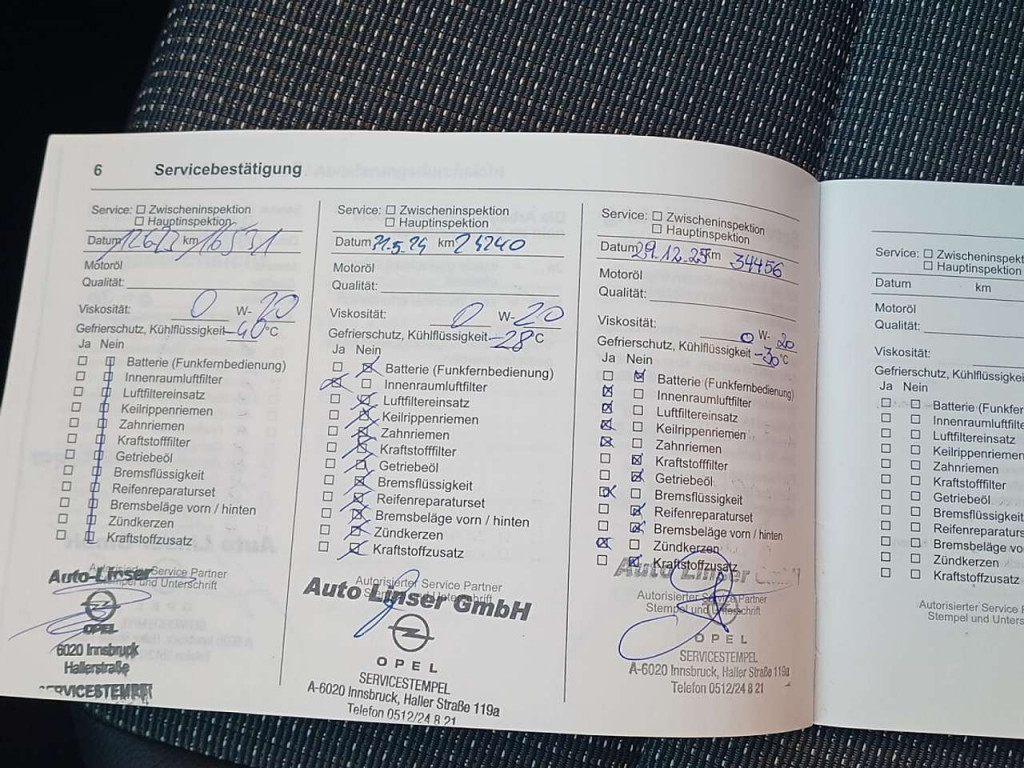 6 Servicebestätigung
Service: ☐ Zwischeninspektion
☐ Hauptinspektion
Datum km 16531
Motoröl
Qualität:
Viskosität: 0 W-20
Gefrierschutz, Kühlflüssigkeit -40 °C
Ja Nein
Batterie (Funkfernbedienung)
Innenraumluftfilter
Luftfiltereinsatz
Keilrippenriemen
Zahnriemen
Kraftstofffilter
Getriebeöl
Bremsflüssigkeit
Reifenreparaturset
Bremsbeläge vorn / hinten
Zündkerzen
Kraftstoffzusatz
Autorisierter Service Partner
Stempel und Unterschrift
Auto-Linser
OPEL
6020 Innsbruck
Hallerstraße
SERVICESTEMPEL
Service: ☐ Zwischeninspektion
☐ Hauptinspektion
Datum 21.5.24 km 24240
Motoröl
Qualität:
Viskosität: 0 W-20
Gefrierschutz, Kühlflüssigkeit -28 °C
Ja Nein
Batterie (Funkfernbedienung)
Innenraumluftfilter
Luftfiltereinsatz
Keilrippenriemen
Zahnriemen
Kraftstofffilter
Getriebeöl
Bremsflüssigkeit
Reifenreparaturset
Bremsbeläge vorn / hinten
Zündkerzen
Kraftstoffzusatz
Autorisierter Service Partner
Stempel und Unterschrift
Auto Linser GmbH
OPEL
SERVICESTEMPEL
A-6020 Innsbruck, Haller Straße 119a
Telefon 0512/24 8 21
Service: ☐ Zwischeninspektion
☐ Hauptinspektion
Datum 29.12.25 km 34456
Motoröl
Qualität:
Viskosität: 0 W-20
Gefrierschutz, Kühlflüssigkeit -30 °C
Ja Nein
Batterie (Funkfernbedienung)
Innenraumluftfilter
Luftfiltereinsatz
Keilrippenriemen
Zahnriemen
Kraftstofffilter
Getriebeöl
Bremsflüssigkeit
Reifenreparaturset
Bremsbeläge vorn / hinten
Zündkerzen
Kraftstoffzusatz
Auto Linser GmbH
Autorisierter Service Partner
Stempel und Unterschrift
OPEL
SERVICESTEMPEL
A-6020 Innsbruck, Haller Straße 119a
Telefon 0512/24 8 21
Service: ☐ Zwischeninspekt
☐ Hauptinspektion
Datum km
Motoröl
Qualität:
Viskosität:
Gefrierschutz, Kühlflüssigkei
Ja Nein
Batterie (Funkfer
Innenraumluftfilte
Luftfiltereinsatz
Keilrippenriemen
Zahnriemen
Kraftstofffilter
Getriebeöl
Bremsflüssigkeit
Reifenreparatur
Bremsbeläge vo
Zündkerzen
Kraftstoffzusatz
Autorisierter Service
Stempel und Unters